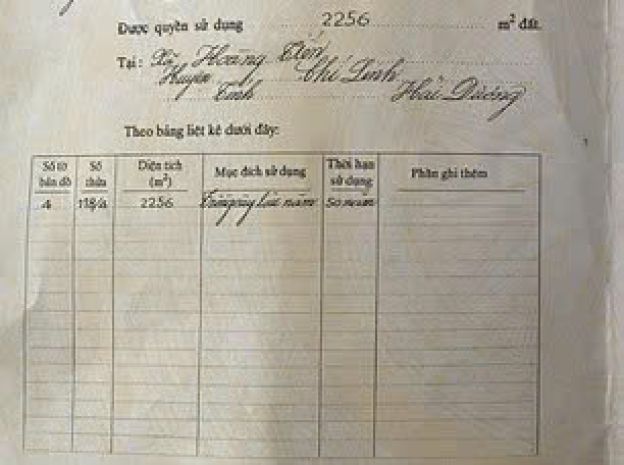 Được quyền sử dụng 2256 m² đất.
Tại: Xã Hoàng Tiến
Huyện Chí Linh
Tỉnh Hải Dương
Theo bảng liệt kê dưới đây:
Số tờ bản đồ Số thửa Diện tích (m²) Mục đích sử dụng Thời hạn sử dụng Phần ghi thêm
4 118/a 2256 lâu năm 50 năm